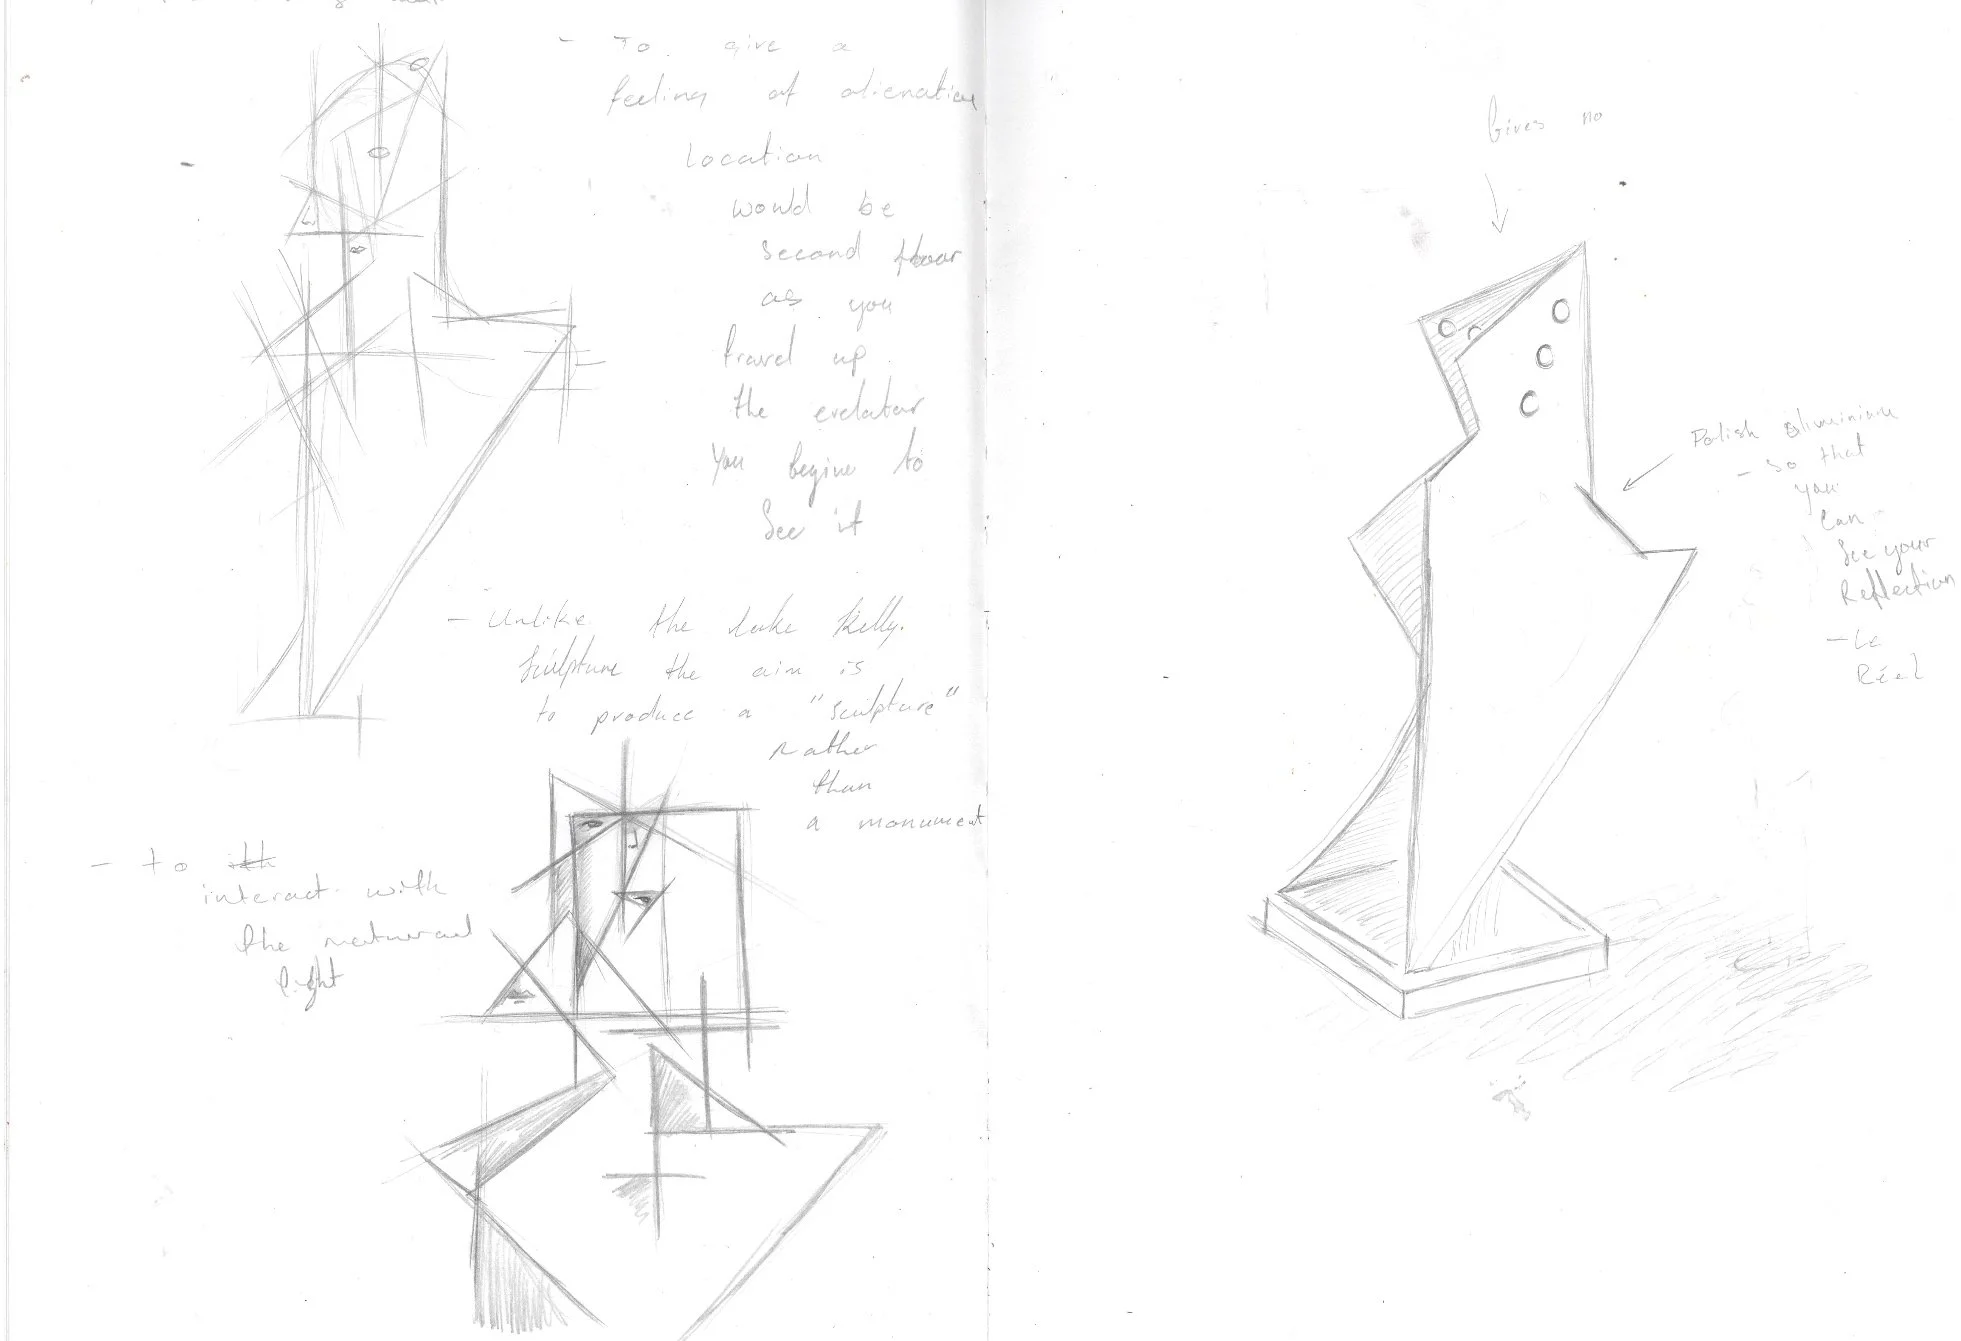 - To give a
feeling of alienation
Location
would be
second floor
as you
travel up
the
You begine to
See it
- Unlike the Luke Kelly.
Sculpture the aim is
to produce a "sculpture"
rather
than
a monument
- to
interact with
the natureal
light
Gives no
Polish aluminium
- So that
you
Can
See your
Reflection
- Le
Réel